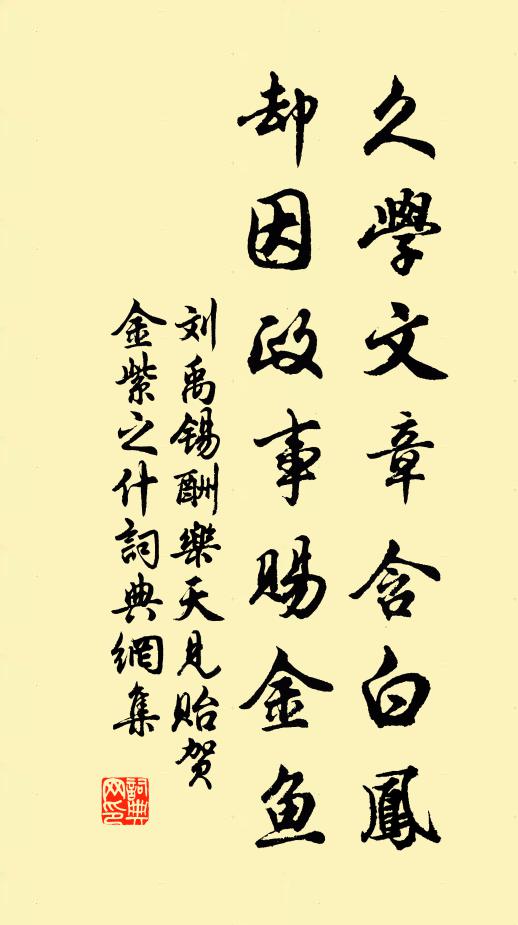 久學文章含白鳳
却因政事賜金魚
刘禹锡酬樂天見貽賀
金紫之什詞典網集
詞典
网印